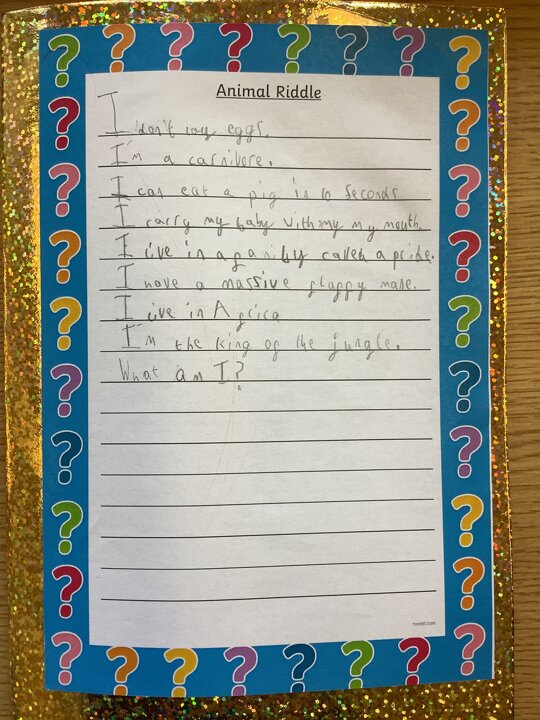 Animal Riddle
I don't lay eggs.
I'm a carnivore.
I can eat a pig in 10 seconds
I carry my baby with my my mouth.
I live in a family called a pride.
I have a massive flappy mane.
I live in Africa
I'm the king of the jungle.
What am I?
twinkl.com